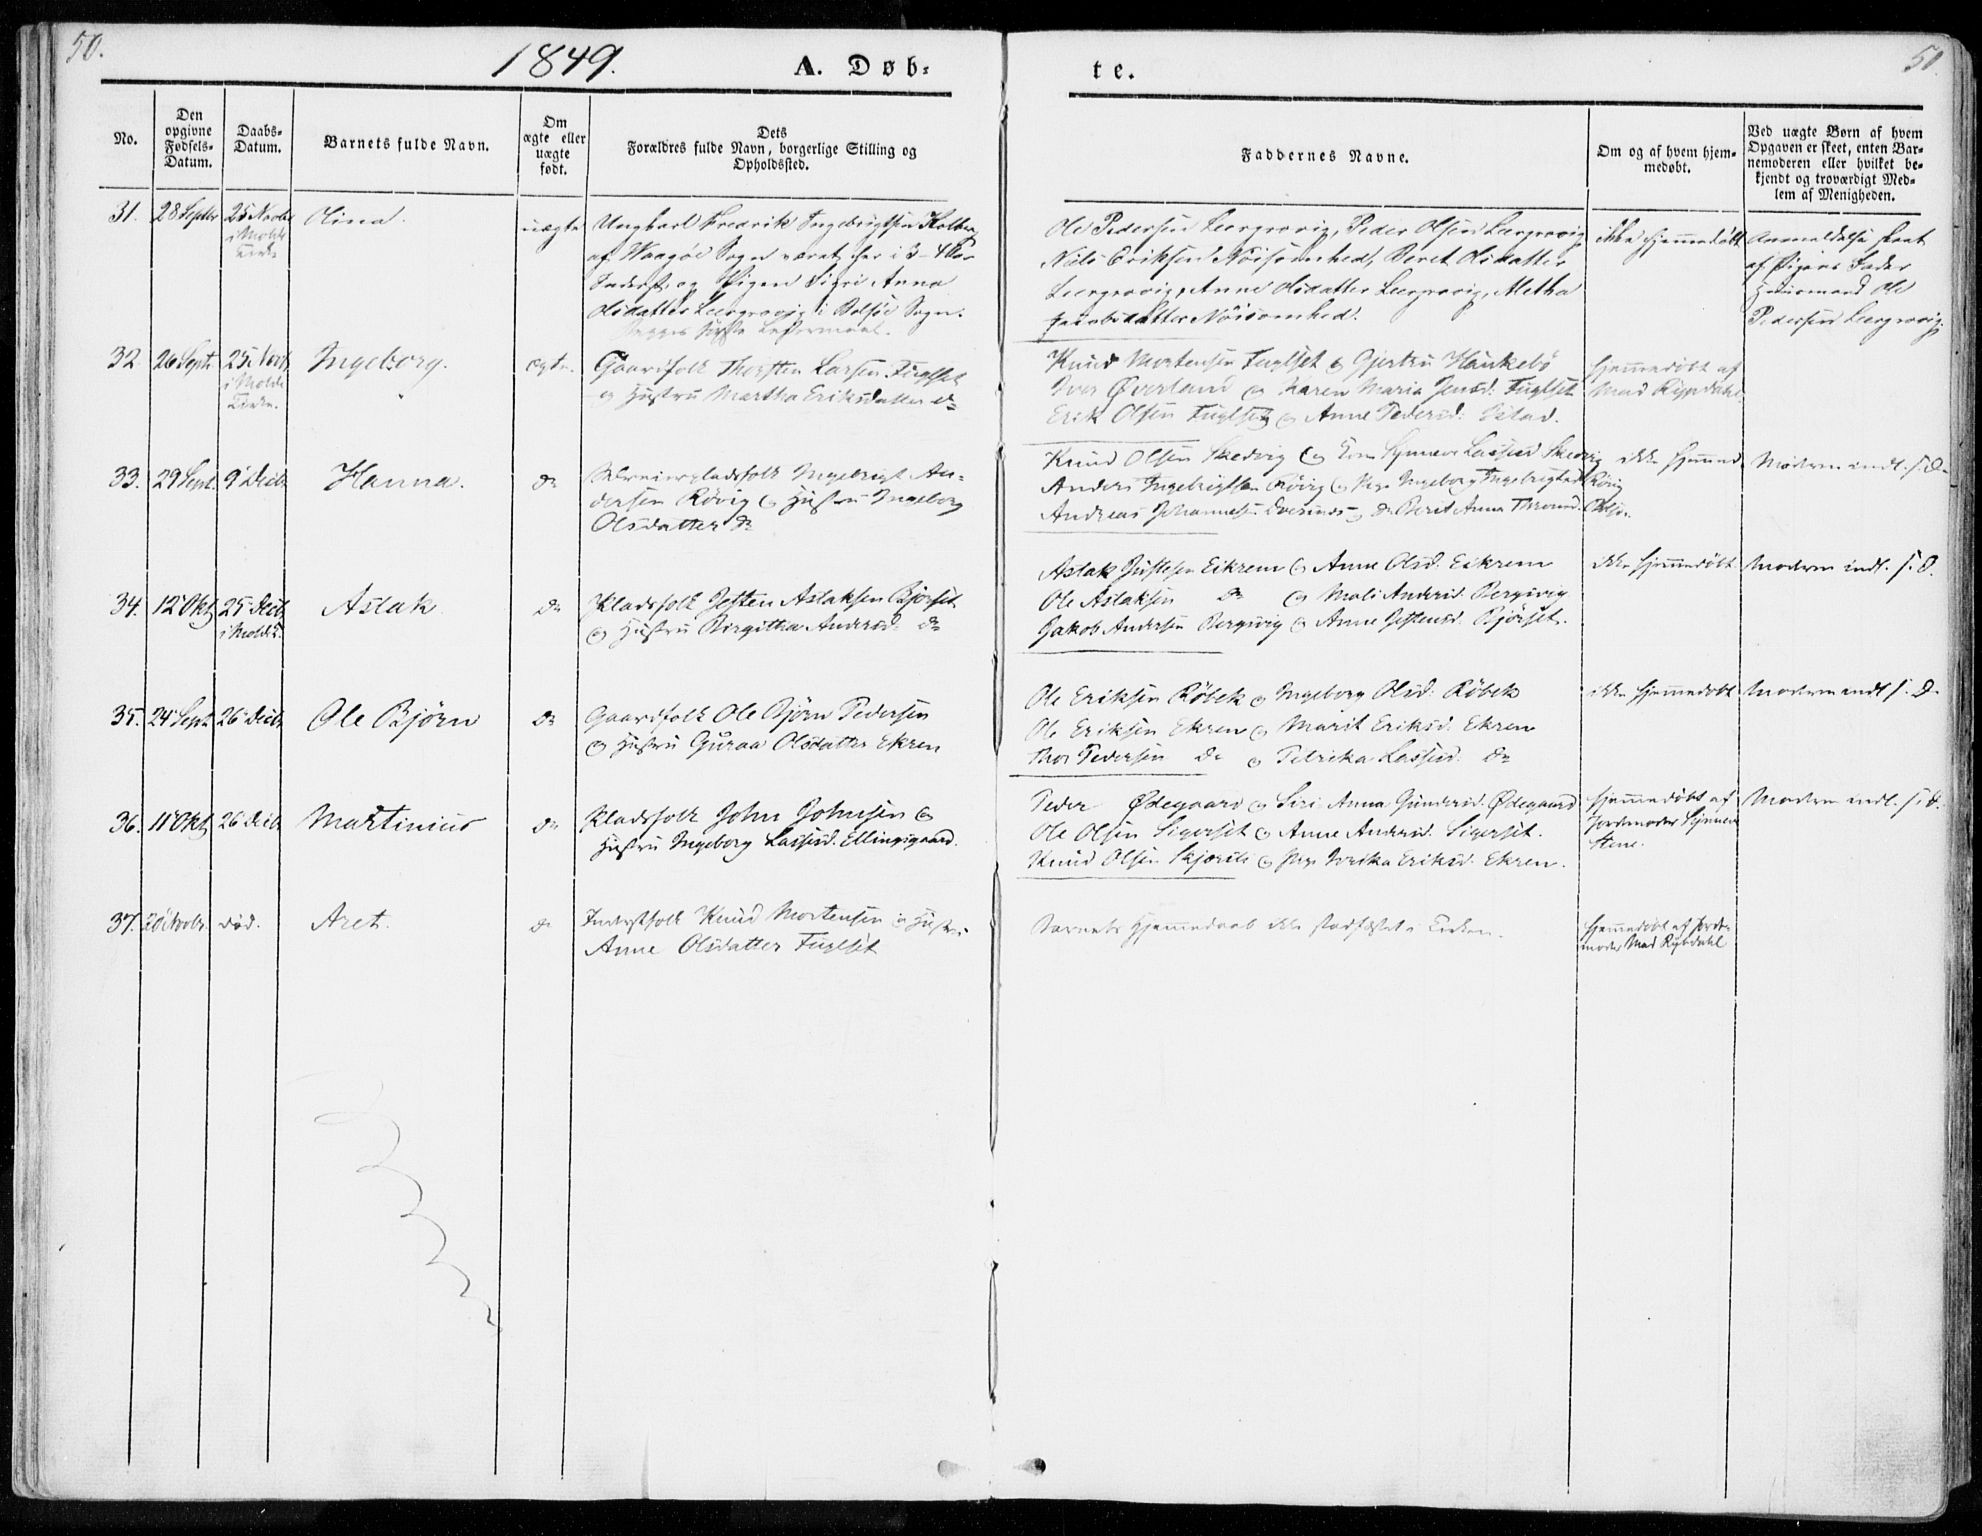 50.
1849.
A. Døb-
te.
50
No.
Den opgivne Fødsels-Datum.
Daabs-Datum.
Barnets fulde Navn.
Om ægte eller uægte født.
Dets Forældres fulde Navn, borgerlige Stilling og Opholdssted.
Faddernes Navne.
Om og af hvem hjemmedøbt.
Ved uægte Børn af hvem Opgaven er skeet, enten Barnemoderen eller hvilket bekjendt og troværdigt Medlem af Menigheden.
31. 28 Septbr 25 Novbr Olina. uægte Ungkarl Fredrik Ingebrigtsen
i Molde Kirke
af Waagøe Sogn været her i 3-4 Aar
Inderst, og Pigen Siri Anna
Olsdatter Leergrovig i Bolsøe Sogn.
Begges første Leiermaal.
Ole Pedersen Leergrovig, Peder Olsen Leergrovig
Niels Eriksen Nøisomhed, Beret Olsdatter
Leergrovig, Anne Olsdatter Leergrovig, Metha
Jacobsdatter Nøisomhed.
ikke hjemmedøbt
Anmeldelse skeet
af Pigens Fader
Huusmand Ole
Pedersen Leergrovig.
32 26 Sept. 25 Novb. Ingeborg. ægte. Gaardfolk Thorsten Larsen Fuglset
i Molde Kirke.
og Hustru Martha Eriksdatter do
Knud Mortensen Fuglset og Gjertru Hankebø
Iver Øverland og Karen Maria Jensd: Fuglset
Erik Olsen Fuglset og Anne Pedersd: Istad.
hjemmedøbt af
Mad Rypdahl.
33. 29 Sept. 9 Decb. Hanna. do Ingebrigt An-
dersen Røvig og Hustru Ingeborg
Olsdatter do
Knud Olsen Skedvig og Kone Synneve Lassesd Skedvig
Anders Ingebrigtsen Røvig og Pige Ingeborg Ingebrigtsd Røvig
Andreas Johannesen og do Berit Anna
ikke hjemmed.
Moderen indl. s. D.
34. 12 Okt. 25 Decb. Aslak do Pladsfolk Josten Aslaksen Bjørset
i Molde K.
og Hustru Birgitha Andersd. do
Aslak Justesen Eikrem og Anne Olsd. Eikrem
Ole Aslaksen do og Mali Andersd. Bergivig
Jakob Andersen Bergivig og Anne Jostensd. Bjørset.
ikke hjemmedøbt
Moderen indl. s. D.
35. 24 Sept. 26 Decb. Ole Bjørn do Gaardfolk Ole Bjørn Pedersen
og Hustru Guraa Olsdatter Ekren
Ole Eriksen Røbek og Ingeborg Olsd: Røbek
Ole Eriksen Ekren og Marit Eriksd. Ekren
Thor Pedersen do og Petrika Lassesd. do
ikke hjemmedøbt
Moderen indl s. D.
36. 11 Okt. 26 Decb. Martinius do Pladsfolk John Johnsen og
Hustru Ingeborg Lassesd. Ellingsgaard.
Peder Ødegaard og Siri Anna Gundersd. Ødegaard
Ole Olsen Sigerset og Anne Andersd. Sigerset.
Knud Olsen og Pige Erika Eriksd. Ekren.
hjemmedøbt af
Jordmoder Synneve
Stene.
Moderen indl. s. D.
37. 20 Novbr. død. Aret. do Inderstfolk Knud Mortensen og Hustru
Anne Olsdatter Fuglset
Barnets Hjemmedaab ikke stadfæstet i Kirken.
hjemmedøbt af Jord-
moder Mad Rypdahl